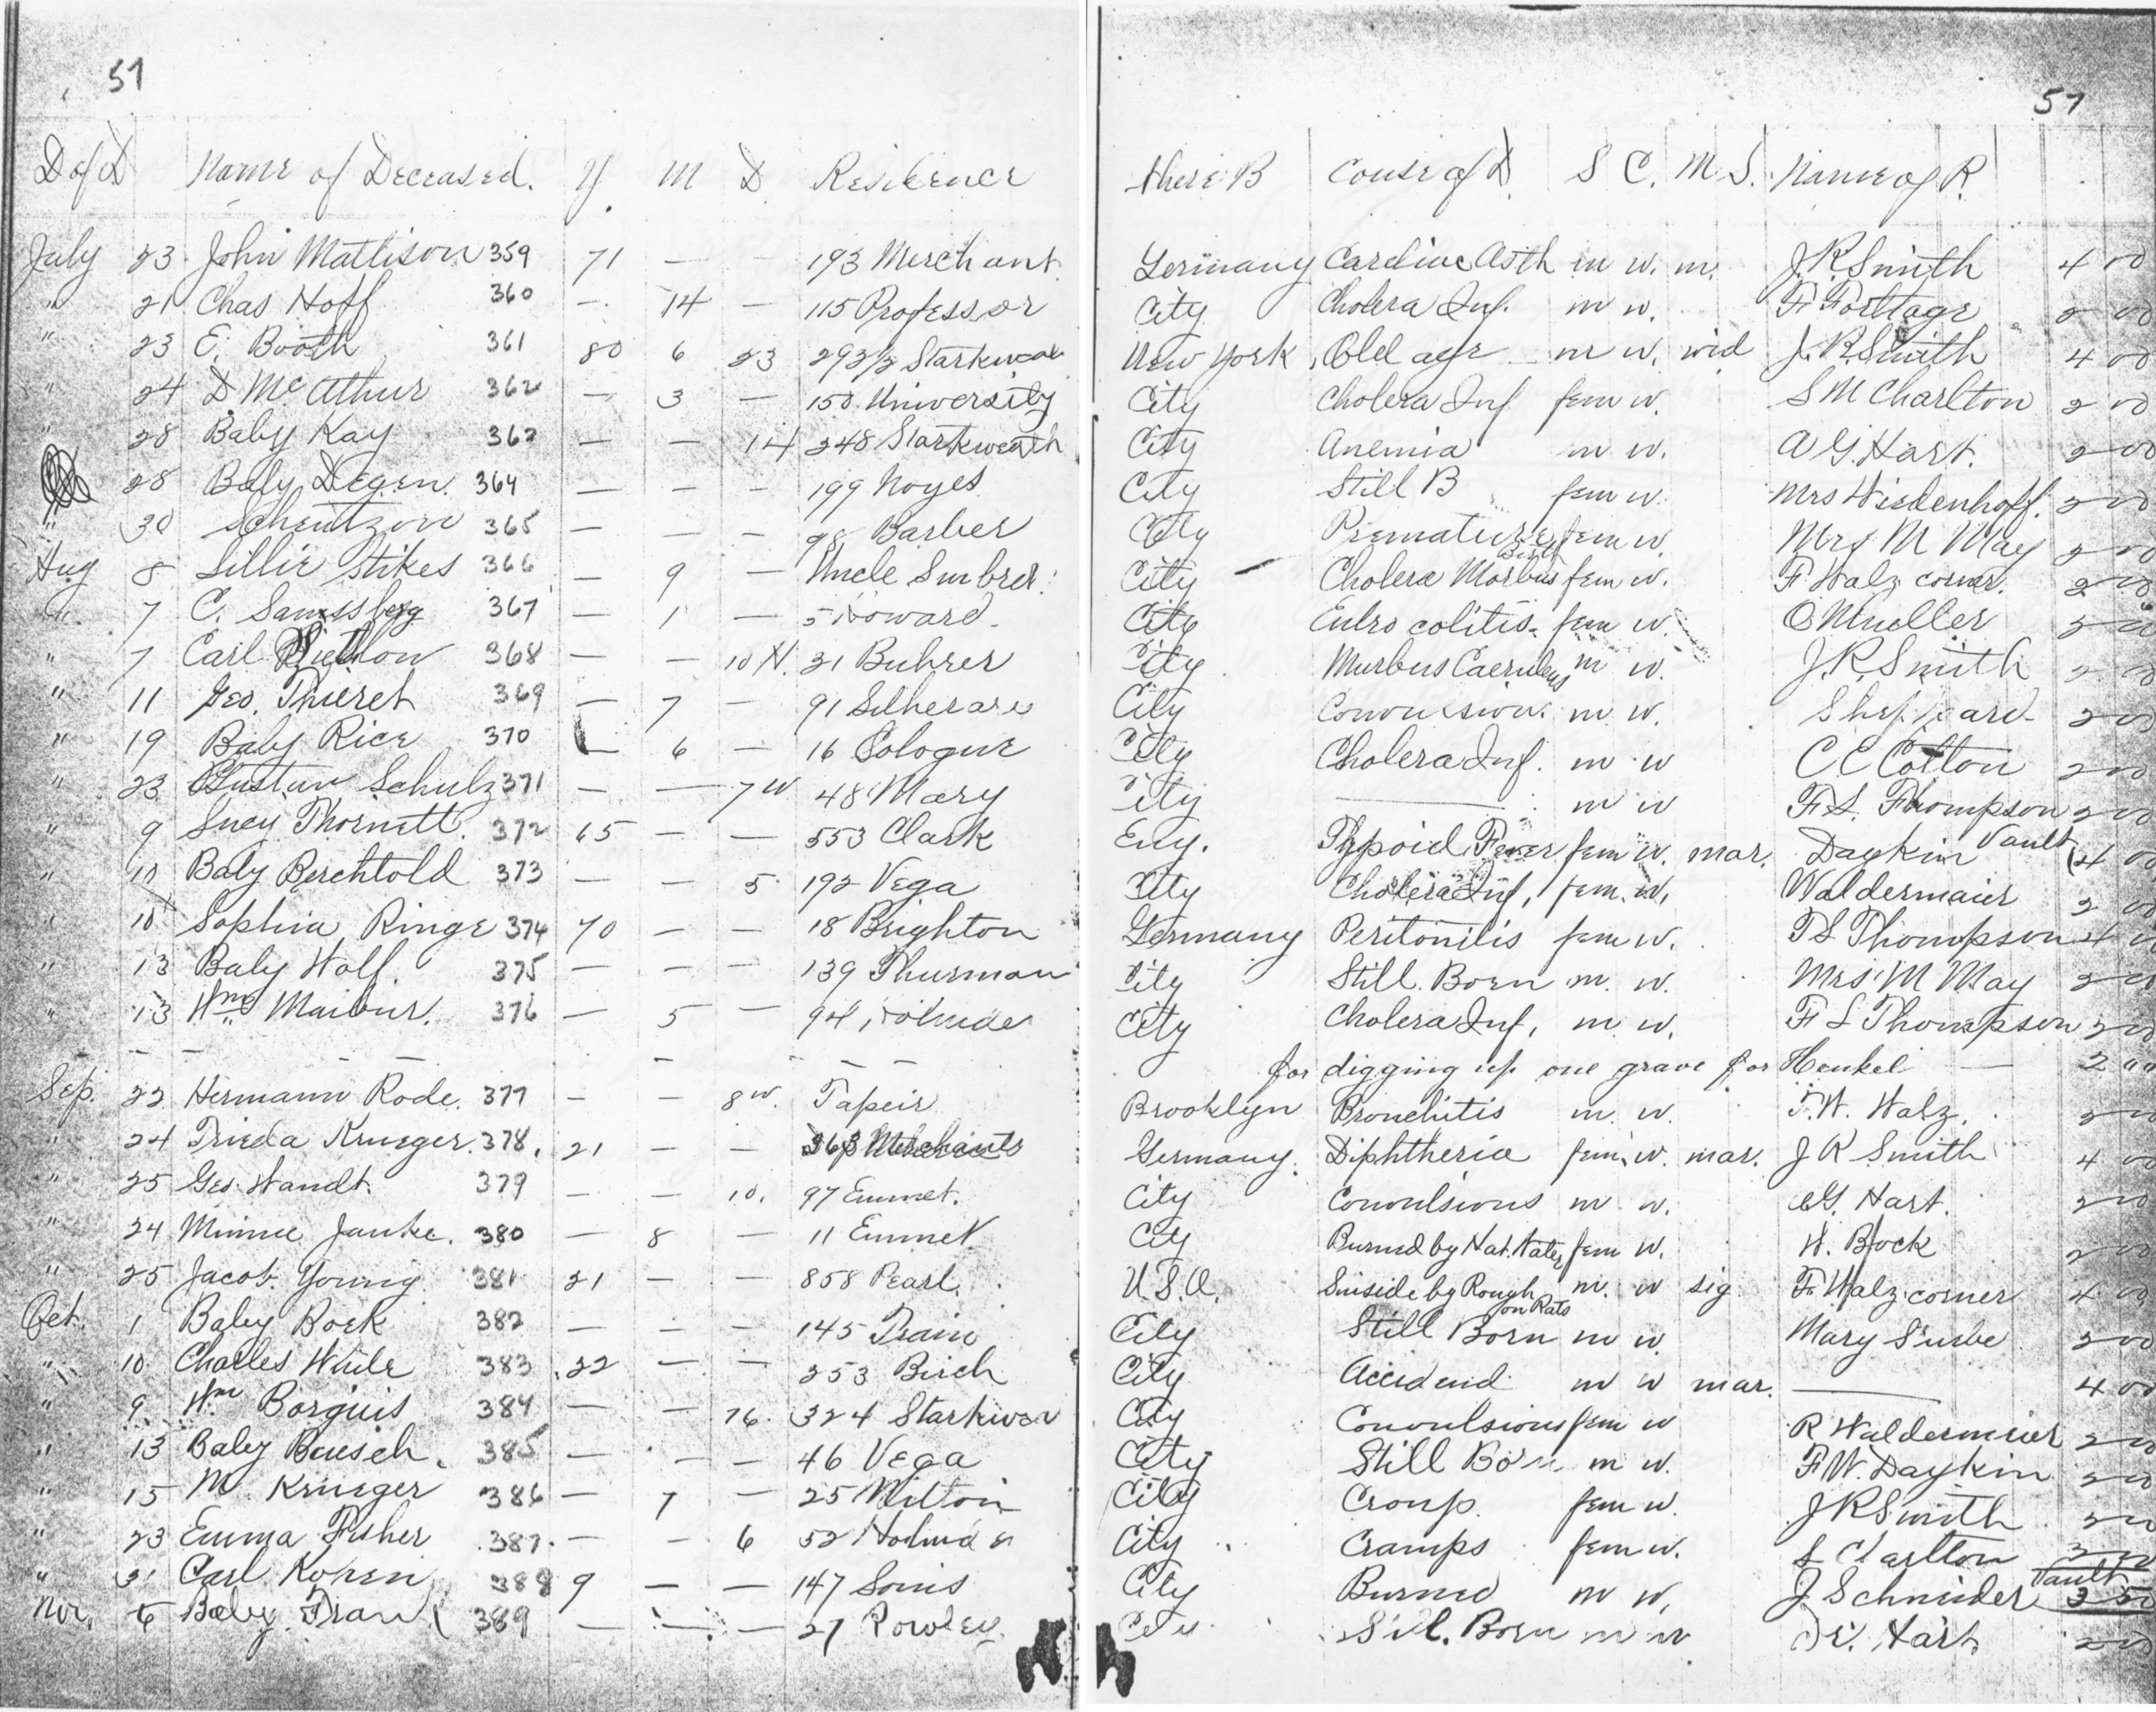 51
D of D Name of Deceased. Y M D Residence
July 23 John Mattison 359 71 — - 193 Merchant
" 21 Chas Hoff 360 - 14 — 115 Professor
" 23 E. Booth 361 80 6 23 293½
" 24 D McAthur 362 — 3 — 150 University
" 28 Baby Kay 363 — — 14 248 Starkweath
28 Baby Degen. 364 — — - 199 Noyes
" 30 365 — - - 98 Barber
Aug 8 Lillie Stikes 366 — 9 — Uncle
" 7 C. 367 — 1 — 5 Howard
" 7 Carl 368 — — 10 H. 31 Buhrer
" 11 Geo. Thieret 369 — 7 — 91
" 19 Baby Rice 370 — 6 — 16 Cologne
" 23 Gustav Schulz 371 — — 7 W 48 Mary
" 9 Lucy Thornett. 372 65 — — 553 Clark
" 10 Baby Berchtold 373 — — 5 192 Vega
" 10 Sophia Ringe 374 70 — — 18 Brighton
" 13 Baby Wolf 375 — — — 139 Thurman
" 13 Wm 376 — 5 — 94
Sep. 22 Hermann Rode. 377 - - 8 w. Tapeir
" 24 Frieda Krueger. 378. 21 — — 363 Merchants
" 25 Geo. Wandt. 379 — — 10. 97 Emmet.
" 24 Minnie Janke. 380 — 8 — 11 Emmet
" 25 Jacob Young 381 21 — — 858 Pearl.
Oct. 1 Baby Bock 382 — — - 145 Train
" 10 Charles 383 .22 — — 253 Birch
" 9 Wm Borguis 384 — — 76.
" 13 Baby Bausch. 385 — - — 46 Vega
" 15 M. Krueger 386 — 7 — 25 Milton
" 23 Emma Fisher 387. — — 6 52
" 31 Carl 388 9 — — 147
Nov. 6 Baby 389 — — — 27 Rowley
51
Where B Couse of D S C. M S. Name of R.
Germany Cardiac Asth m w. m. J. R. Smith 4 00
City Cholera Inf. m w. 2 00
New York Old age m w. wid J. R. Smith 4 00
City Cholera Inf fem w. S M Charlton 2 00
City Anemia m w. A G. Hart. 2 00
City Still B fem w. Mrs Wiedenhoff. 2 00
City Premature Birth fem w. Mrs M May 2 00
City — Cholera Morbus fem w. F Walz corner. 2 00
City Entro colitis. fem w. O Mueller 2 00
City Murbus Caeruleus m w. J. R. Smith 2 00
City Convulsion. m w. Sheppard 2 00
City Cholera Inf. m w C C Cotton 2 00
City — m w F. L. Thompson 2 00
Eng. Typoid Fever fem w. mar. Daykin Vault 4 00
City Cholera Inf, fem. w. Waldermaier 2 00
Germany Peritonitis fem w. F L Thompson 4 00
City Still Born m. w. Mrs M May 2 00
City Cholera Inf, m w. F L Thompson 2 00
for digging up one grave for Henkel — 2 00
Brooklyn Bronchitis m. w. F. W. Walz. 2 00
Germany. Diphtheria fem. w. mar. J R Smith 4 00
City Convulsions m w. G. Hart. 2 00
City Burned by Hot. Water fem w. W. Bock 2 00
U.S.A. Suiside by Rough on Rats m. w sig F. Walz corner 4 00
City Still Born m w. Mary 2 00
City Accidend m w mar. — 4 00
City Convulsions fem w R Waldermeier 2 00
City Still Born m w. F W. Daykin 2 00
City Croup. fem w. J R Smith 2 00
City Cramps fem w. S Charlton 2 00
City Burned m w, J Schneider Vault 3 50
City Still. Born m w Dr. Hart 2 00